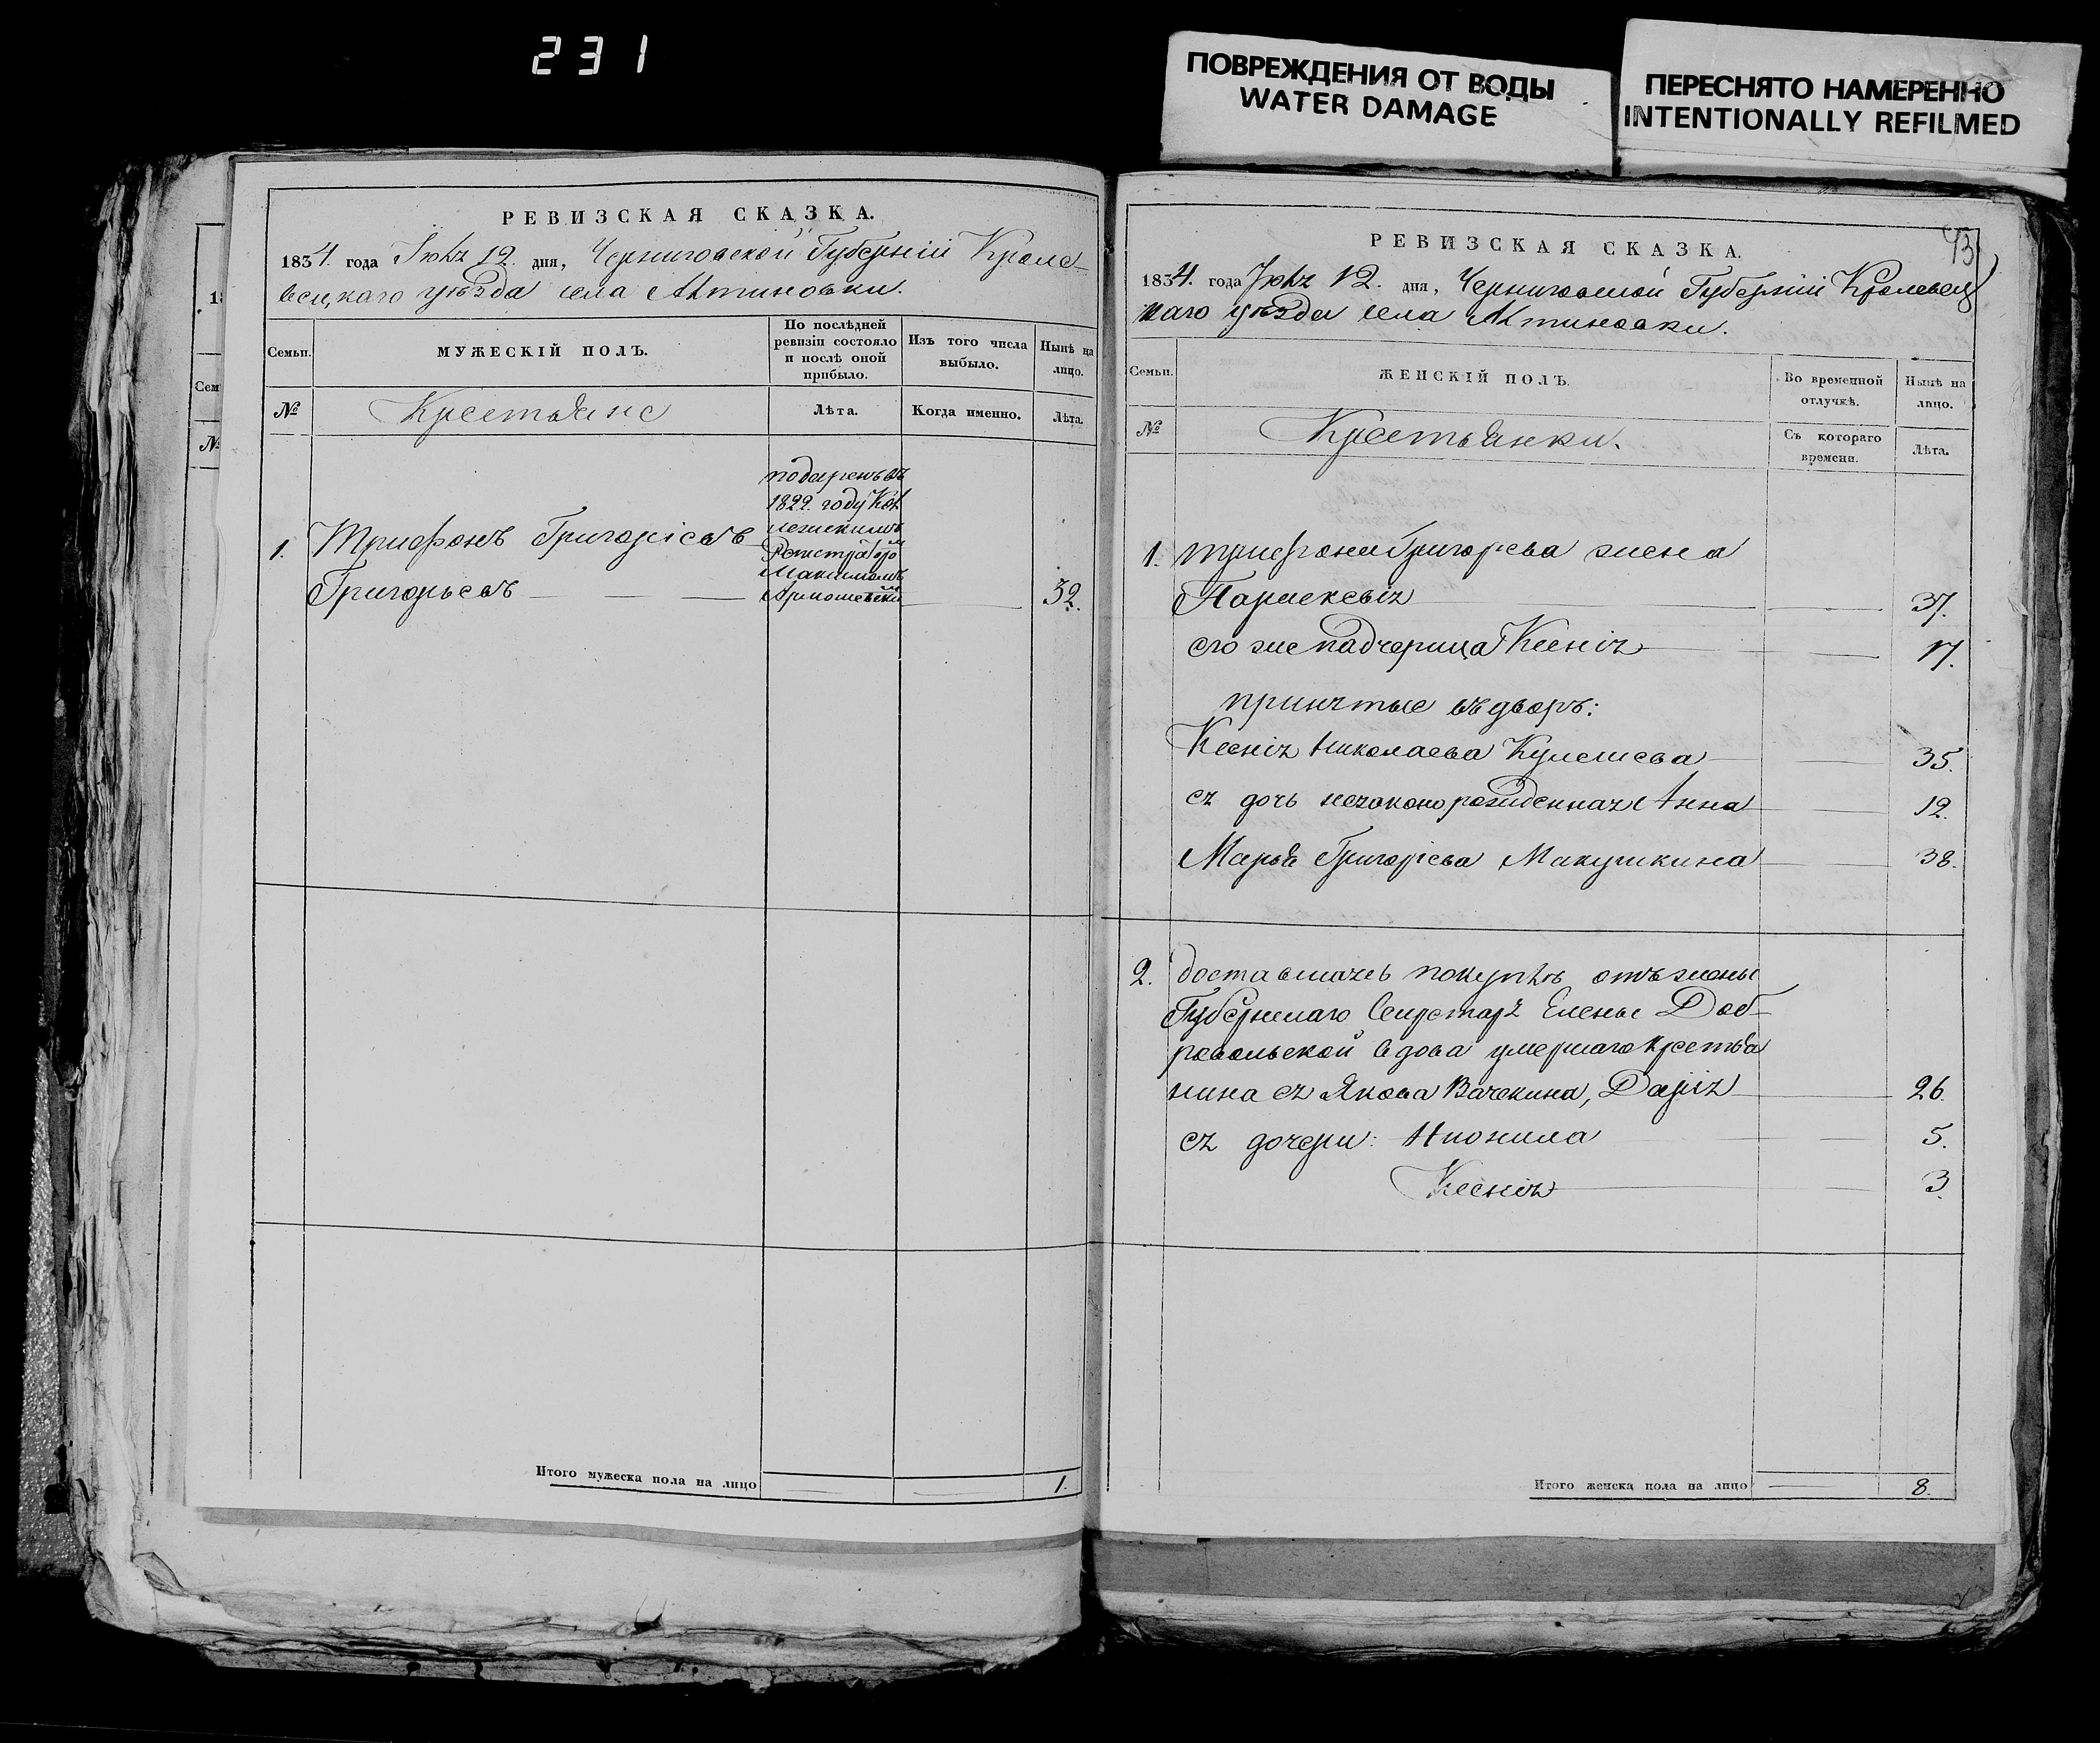 231
ПОВРЕЖДЕНИЯ ОТ ВОДЫ
WATER DAMAGE
ПЕРЕСНЯТО НАМЕРЕННО
INTENTIONALLY REFILMED
РЕВИЗСКАЯ СКАЗКА.
1834. года Іюня 12. дня, Черниговской Губерніи Кроле-
вецкаго уѣзда села Антиновки.
Семьи.
МУЖЕСКІЙ ПОЛЪ.
По послѣдней ревизіи состояло и послѣ оной прибыло.
Изъ того числа выбыло.
Нынѣ на лицо.
№
Крестьяне
Лѣта.
Когда именно.
Лѣта.
подаренъ въ
1822. году Кол
лежскимъ
Регистраторо
Максимомъ
1. Трифонъ Григоріевъ
Григорьевъ 32.
Итого мужеска пола на лицо 1.
43
РЕВИЗСКАЯ СКАЗКА.
1834. года Іюня 12. дня, Черниговской Губерніи Кролевец
каго уѣзда села Антиновки.
Семьи.
ЖЕНСКІЙ ПОЛЪ.
Во временной отлучкѣ.
Нынѣ на лицо.
№
Крестьянки.
Съ котораго времени.
Лѣта.
1. Трифона Григорьева жена
Параскевія 37.
его же падчерица Ксенія 17.
принятые въ дворъ:
Ксенія Николаева Кулешева 35.
ея дочь незаконо рожденная Анна 12.
Марья Григоріева Макушкина 38.
2. доставшаяся покупкѣ отъ жены
Губернскаго Секретаря Елены Доб-
ровольской вдова умершаго крестья
нина ея Якова Вачекина, Дарія 26.
ея дочери: Неонила 5.
Ксенія 3.
Итого женска пола на лицо 8.